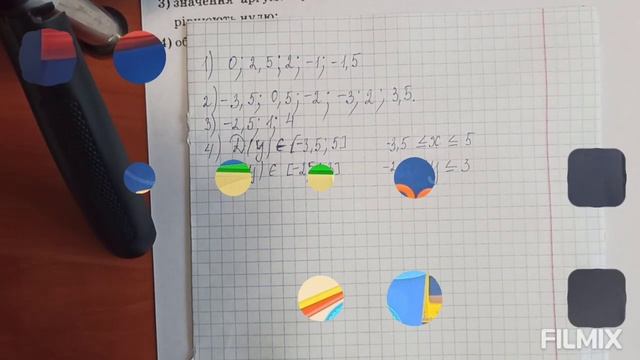 3) значення
рівнюють нулю;
4) об
1) 0; 2,5; 2; -1; -1,5
2) -3,5; 0,5; -2; -3; 2; 3,5.
3) -2,5; 1; 4
4) D(y) ∈ [-3,5; 5] -3,5 ≤ x ≤ 5
y) ∈ y ≤ 3
FILMIX